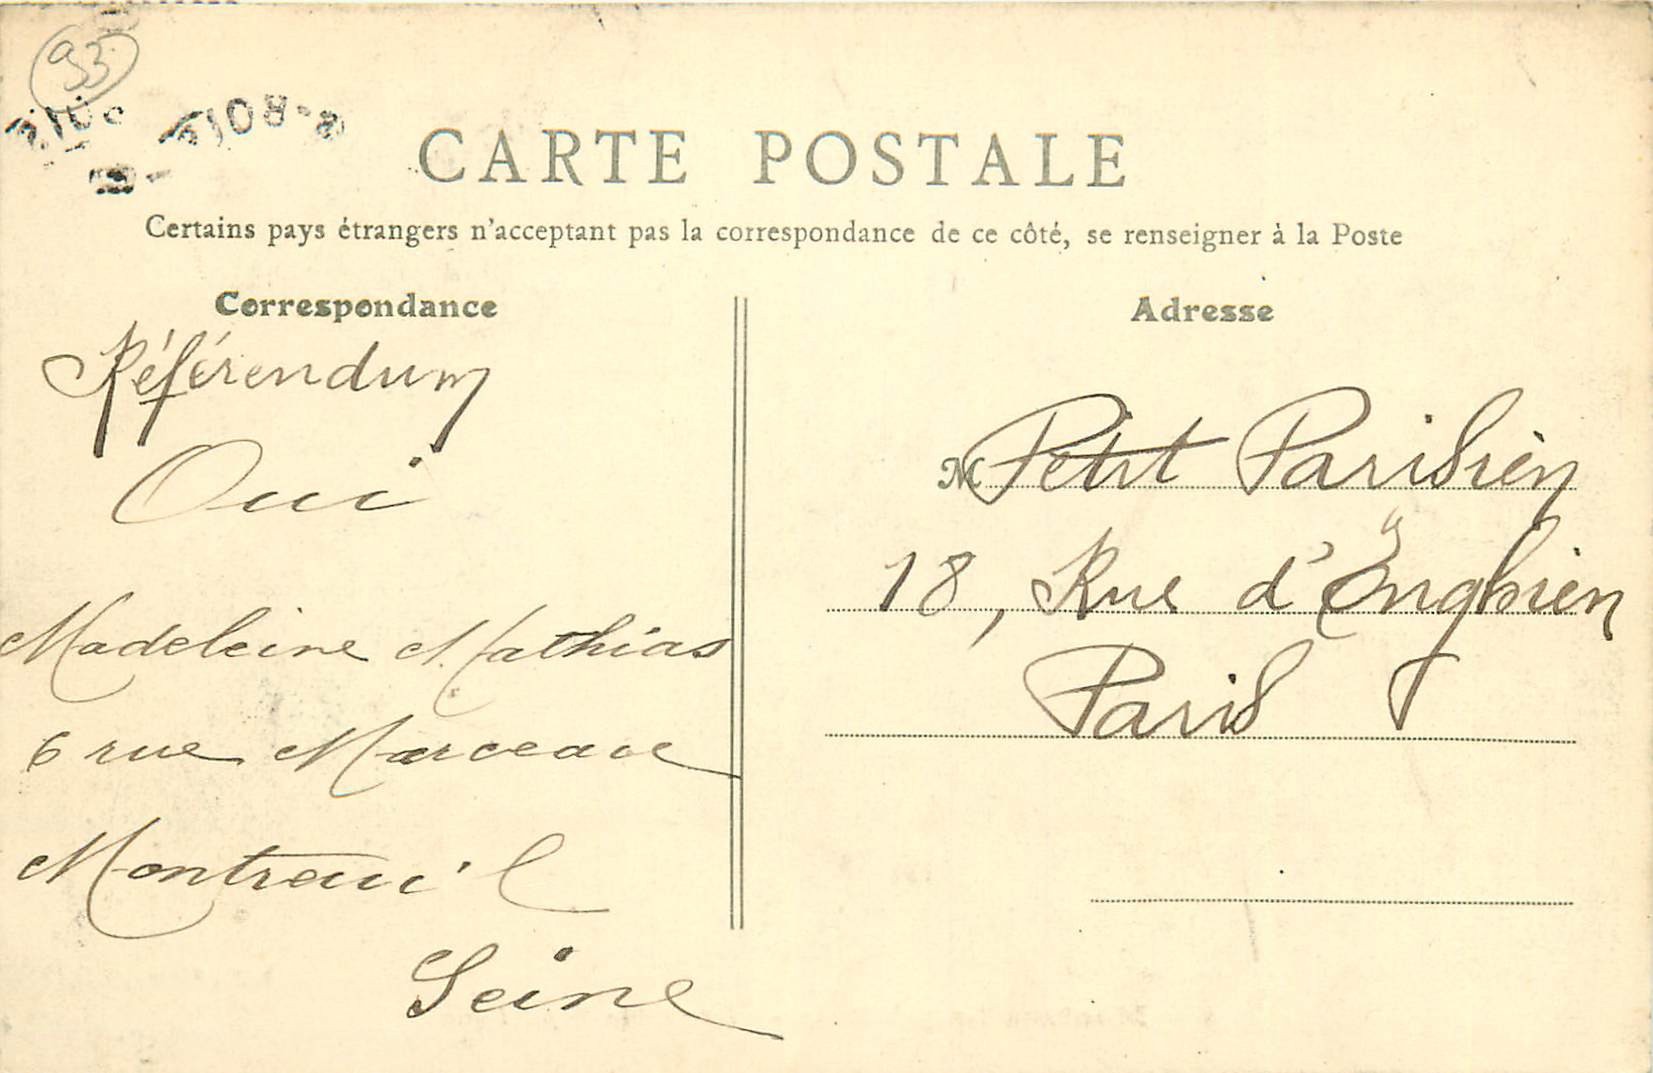 93
CARTE POSTALE
Certains pays étrangers n'acceptant pas la correspondance de ce côté, se renseigner à la Poste
Correspondance
Référendum
Oui
Madeleine Mathias
6 rue Marceau
Montreuil
Seine
Adresse
M Petit Parisien
18, Rue d'Enghien
Paris